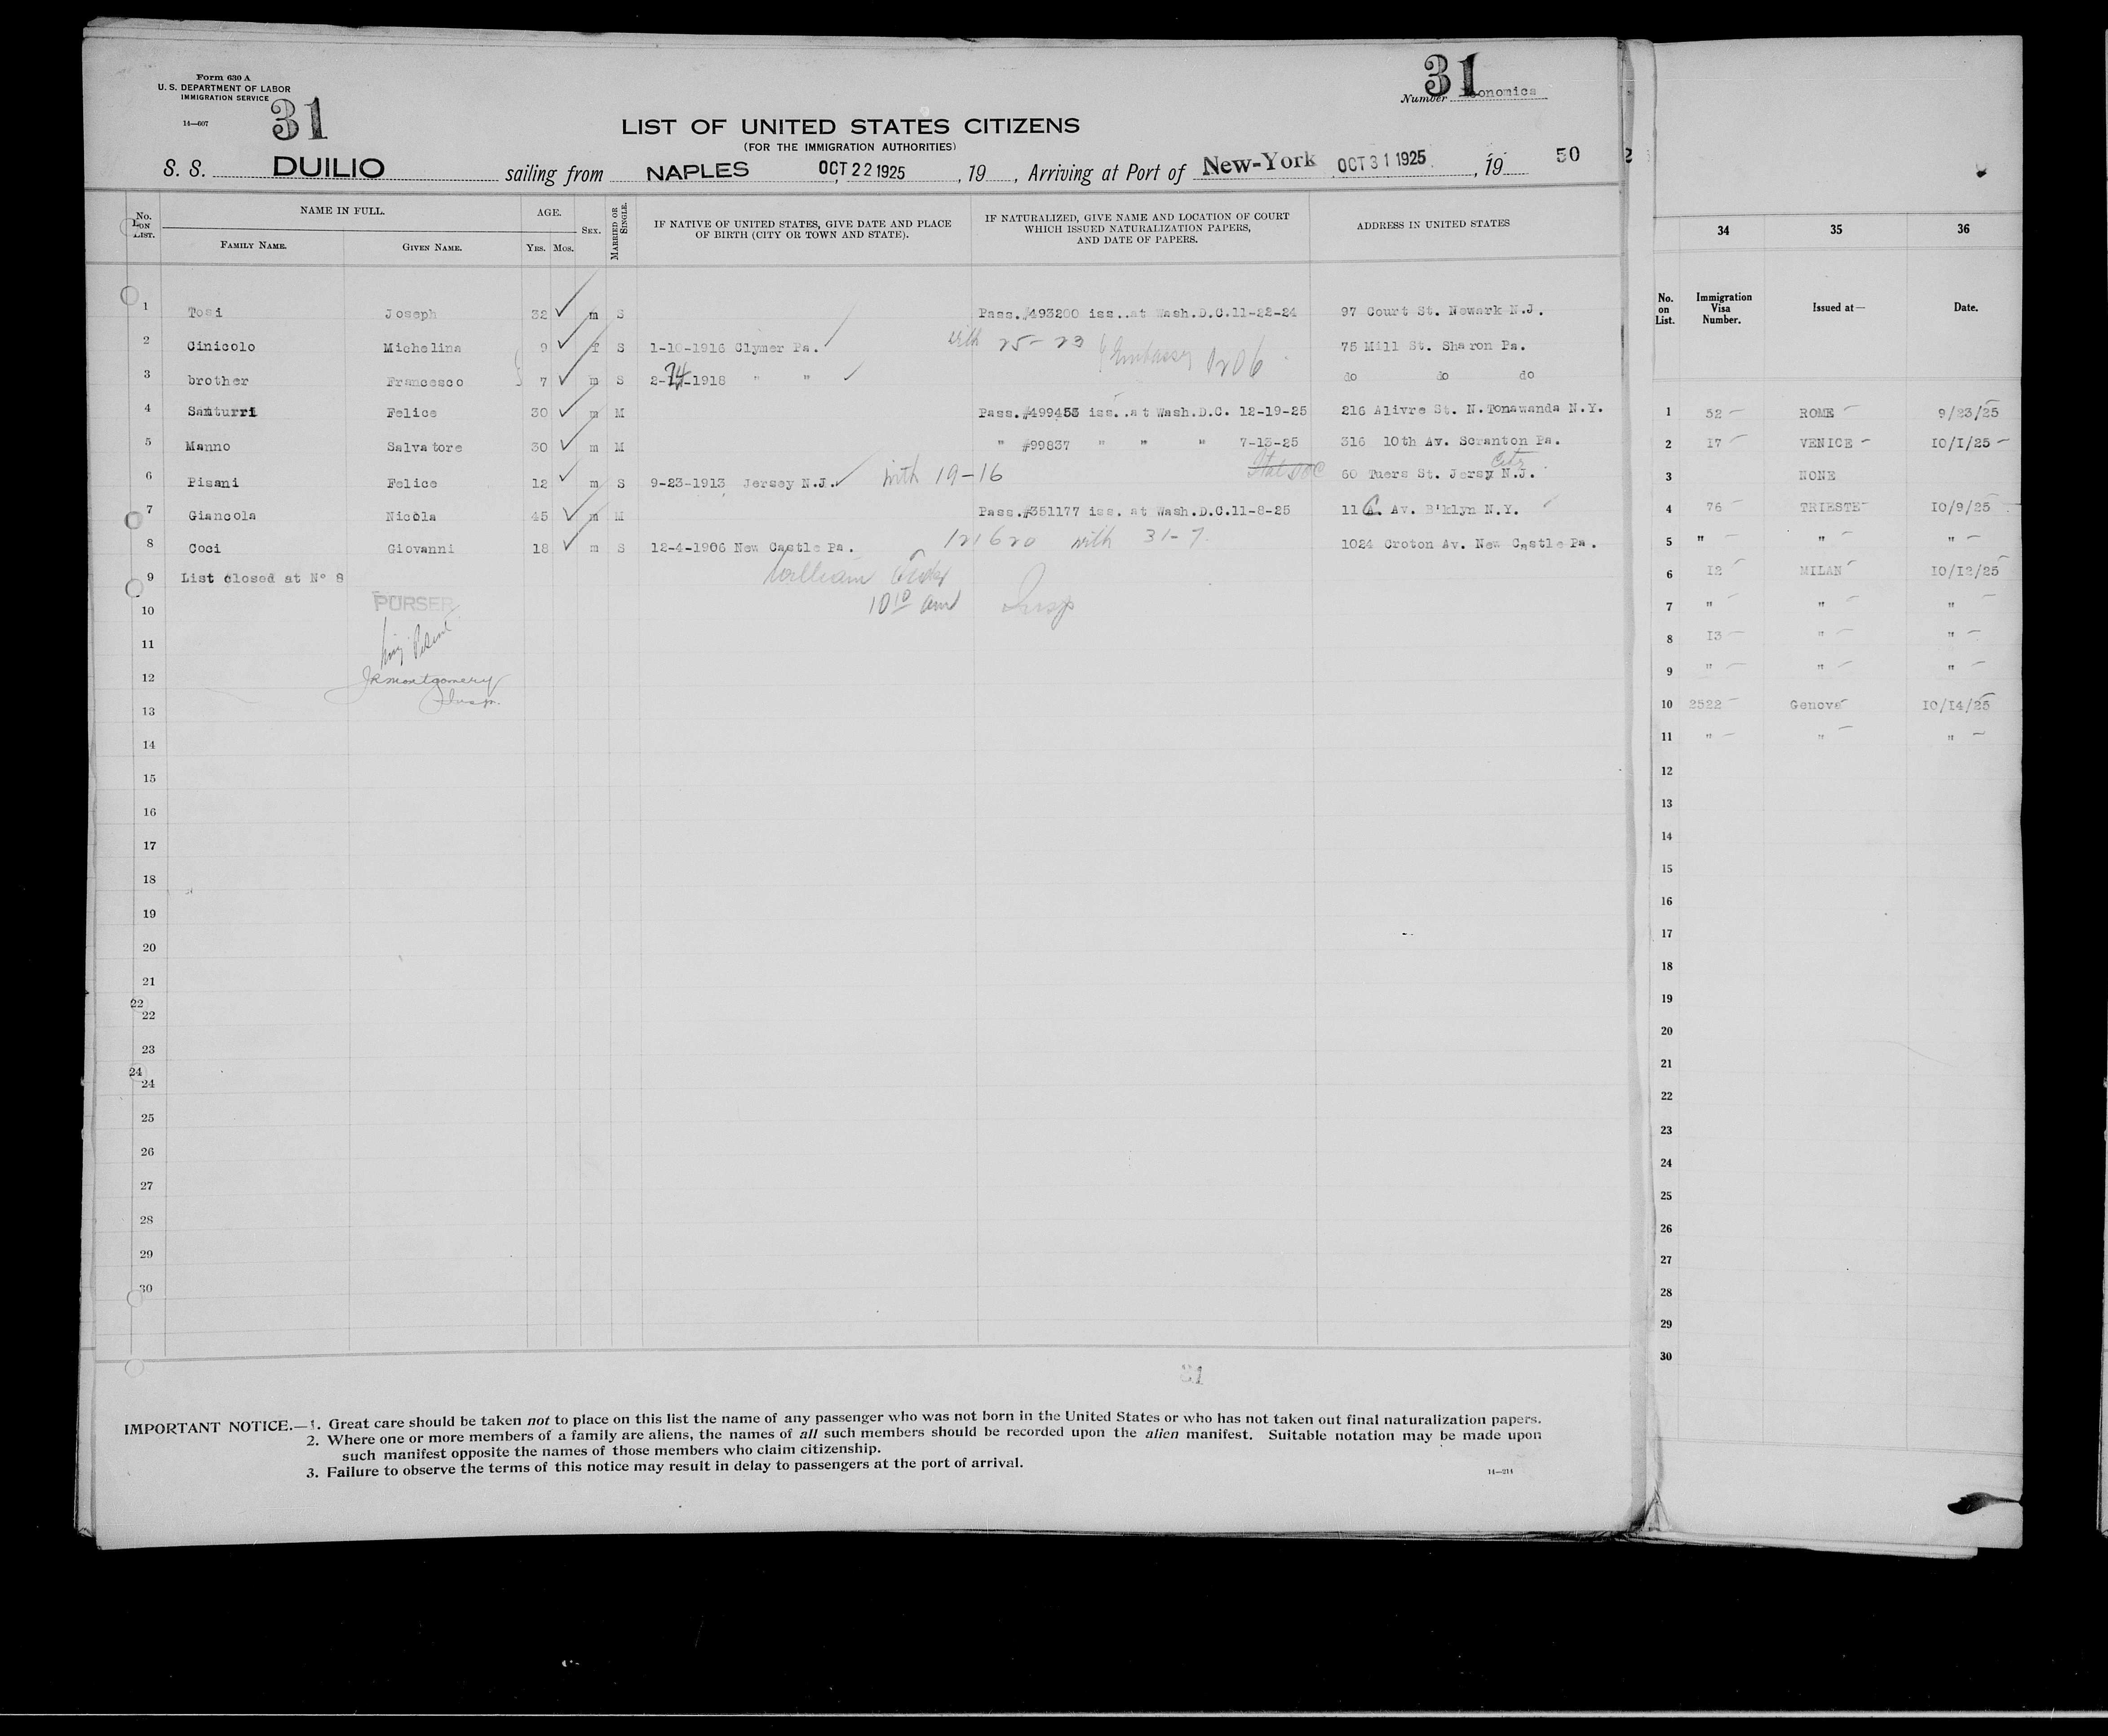 Form 630 A
U. S. DEPARTMENT OF LABOR
IMMIGRATION SERVICE
14—607
31
31
Number
LIST OF UNITED STATES CITIZENS
(FOR THE IMMIGRATION AUTHORITIES)
S. S. DUILIO sailing from NAPLES OCT 22 1925, 19 , Arriving at Port of New-York OCT 31 1925, 19 50
No. ON LIST. NAME IN FULL. AGE. SEX. MARRIED OR SINGLE. IF NATIVE OF UNITED STATES, GIVE DATE AND PLACE OF BIRTH (CITY OR TOWN AND STATE). IF NATURALIZED, GIVE NAME AND LOCATION OF COURT WHICH ISSUED NATURALIZATION PAPERS, AND DATE OF PAPERS. ADDRESS IN UNITED STATES
FAMILY NAME. GIVEN NAME. YRS. MOS.
1 Tosi Joseph 32 m S Pass.#493200 iss..at Wash.D.C.11-22-24 97 Court St. Newark N.J.
2 Cinicolo Michelina 9 f S 1-10-1916 Clymer Pa. with 25-23 Embassy 75 Mill St. Sharon Pa.
3 brother Francesco 7 m S 2-24-1918 " " do do do
4 Santurri Felice 30 m M Pass.#499453 iss..at Wash.D.C. 12-19-25 216 Alivre St. N.Tonawanda N.Y.
5 Manno Salvatore 30 m M " #99837 " " " 7-13-25 316 10th Av. Scranton Pa.
6 Pisani Felice 12 m S 9-23-1913 Jersey N.J. with 19-16 60 Tuers St. Jersy City N.J.
7 Giancola Nicola 45 m M Pass.#351177 iss. at Wash.D.C.11-8-25 11 Av. B'klyn N.Y.
8 Coci Giovanni 18 m S 12-4-1906 New Castle Pa. 121620 with 31-7 1024 Croton Av. New Castle Pa.
9 List closed at N° 8
William
10 PURSER 10 10 am Insp
11
12 JR Montgomery
Insp.
13
14
15
16
17
18
19
20
21
22
22
23
24
24
25
26
27
28
29
30
31
IMPORTANT NOTICE.—1. Great care should be taken not to place on this list the name of any passenger who was not born in the United States or who has not taken out final naturalization papers.
2. Where one or more members of a family are aliens, the names of all such members should be recorded upon the alien manifest. Suitable notation may be made upon
such manifest opposite the names of those members who claim citizenship.
3. Failure to observe the terms of this notice may result in delay to passengers at the port of arrival.
14—214
2
34 35 36
No. on List. Immigration Visa Number. Issued at— Date.
1 52 ROME 9/23/25
2 17 VENICE 10/1/25
3 NONE
4 76 TRIESTE 10/9/25
5 " " "
6 12 MILAN 10/12/25
7 " " "
8 13 " "
9 " " "
10 2522 Genova 10/14/25
11 " " "
12
13
14
15
16
17
18
19
20
21
22
23
24
25
26
27
28
29
30